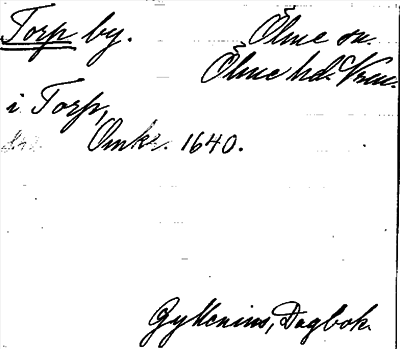 Torp by. Ölme sn.
Ölme hd. Vrml.
i Torp,
Omkr. 1640.
Gyllenius, Dagbok.